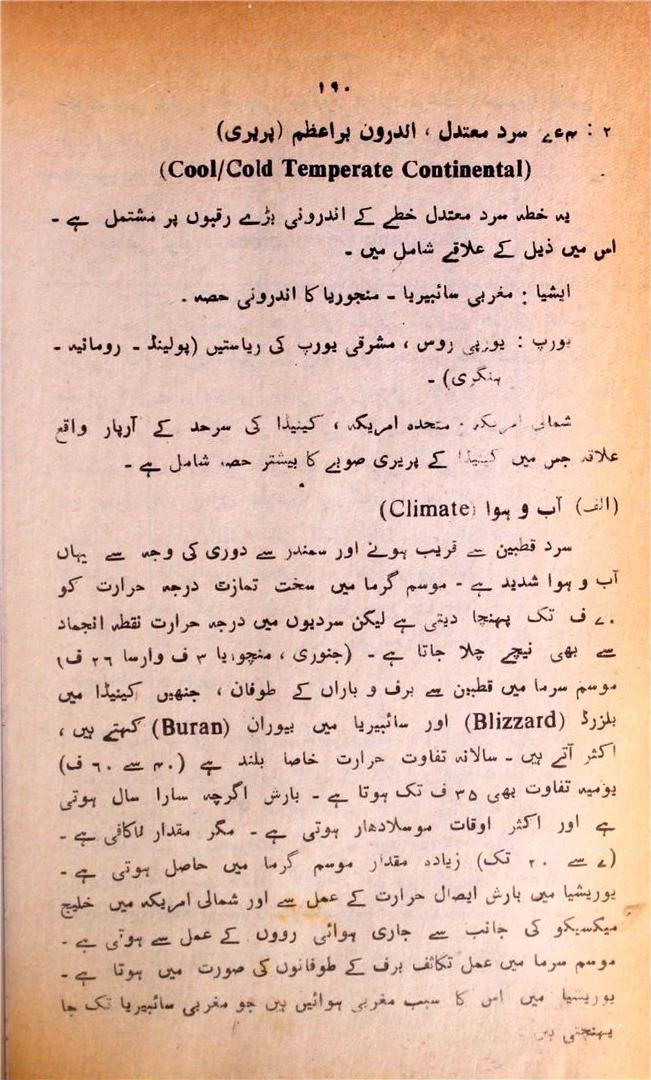 ۱۹۰
۲ : سرد معتدل ، اندرون براعظم (پریری)
(Cool/Cold Temperate Continental)
یہ خطہ سرد معتدل خطے کے اندرونی بڑے رقبوں پر مشتمل ہے ۔
اس میں ذیل کے علاقے شامل ہیں ۔
ایشیا : مغربی سائبیریا ۔ منچوریا کا اندرونی حصہ ۔
یورپ : یورپی روس ، مشرقی یورپ کی ریاستیں (پولینڈ ۔ رومانیہ ۔
ہنگری) ۔
شمالی امریکہ : متحدہ امریکہ ، کینیڈا کی سرحد کے آرپار واقع
علاقہ جس میں کینیڈا کے پریری صوبے کا بیشتر حصہ شامل ہے ۔
(الف) آب و ہوا (Climate)
سرد قطبین سے قریب ہونے اور سمندر سے دوری کی وجہ سے یہاں
آب و ہوا شدید ہے ۔ موسم گرما میں سخت تمازت درجہ حرارت کو
۷۰ ف تک پہنچا دیتی ہے لیکن سردیوں میں درجہ حرارت نقطہ انجماد
سے بھی نیچے چلا جاتا ہے ۔ (جنوری ، منچوریا ۳ ف وارسا ۲۶ ف)
موسم سرما میں قطبین سے برف و باراں کے طوفان ، جنھیں کینیڈا میں
بلزرڈ (Blizzard) اور سائبیریا میں بیوران (Buran) کہتے ہیں ،
اکثر آتے ہیں ۔ سالانہ تفاوت حرارت خاصا بلند ہے (۴۰ سے ۶۰ ف)
یومیہ تفاوت بھی ۳۵ ف تک ہوتا ہے ۔ بارش اگرچہ سارا سال ہوتی
ہے اور اکثر اوقات موسلادھار ہوتی ہے ۔ مگر مقدار ناکافی ہے ۔
(۷ سے ۲۰ تک) زیادہ مقدار موسم گرما میں حاصل ہوتی ہے ۔
یوریشیا میں بارش ایصال حرارت کے عمل سے اور شمالی امریکہ میں خلیج
میکسیکو کی جانب سے جاری ہوائی رووں کے عمل سے ہوتی ہے ۔
موسم سرما میں عمل تکاثف برف کے طوفانوں کی صورت میں ہوتا ہے ۔
یوریسیا میں اس کا سبب مغربی ہوائیں ہیں جو مغربی سائبیریا تک جا
پہنچتی ہیں ۔